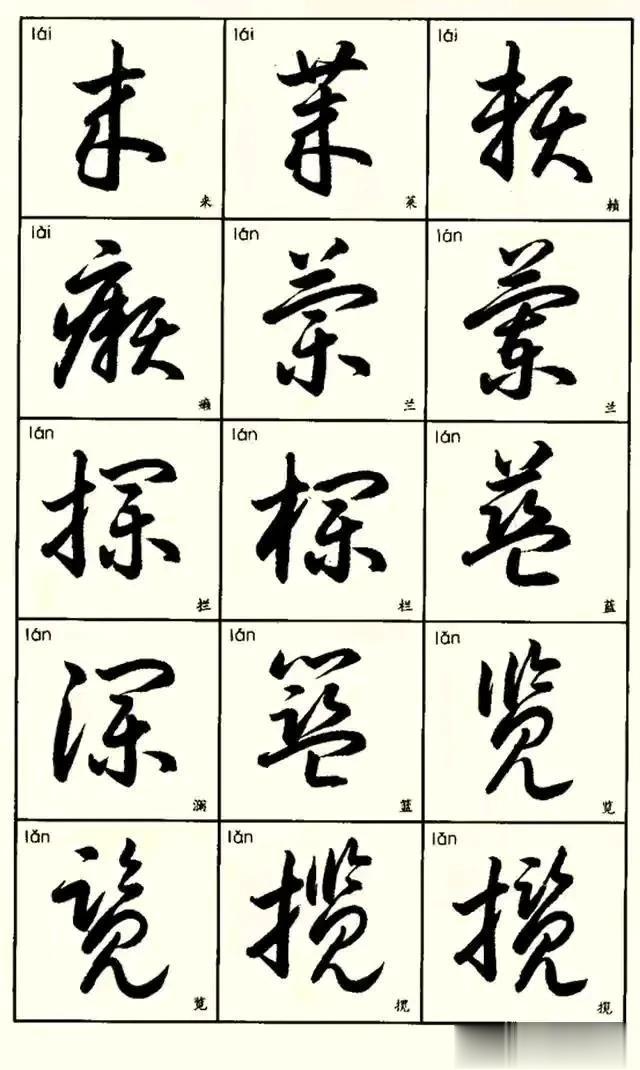 lái lái lái
来 莱 頼
来 莱 赖
lài lán lán
癞 兰 蘭
癞 兰 兰
lán lán lán
拦 栏 蓝
拦 栏 蓝
lán lán lǎn
澜 篮 览
澜 篮 览
lǎn lǎn lǎn
覽 揽 攬
览 揽 揽